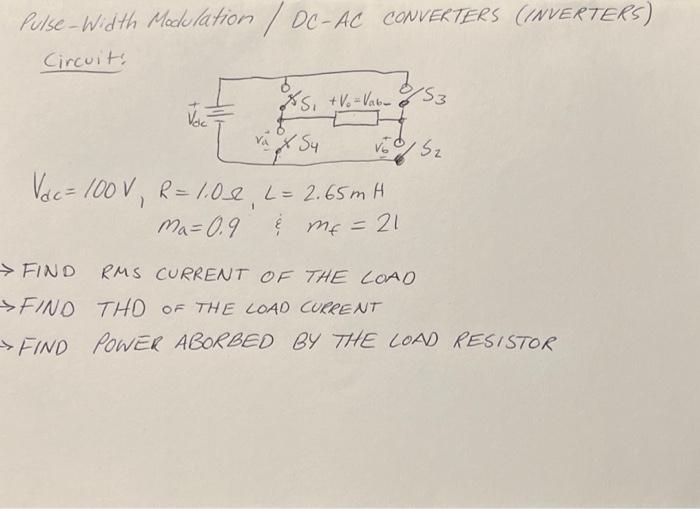 Pulse-Width Modulation / DC-AC CONVERTERS (INVERTERS)
Circuit:
S1 +Vo=Vab- S3
+ Vdc
Va + - S4 Vb + - S2
Vdc = 100V, R = 1.0Ω, L = 2.65mH
ma=0.9 & mf = 21
→ FIND RMS CURRENT OF THE LOAD
→ FIND THD OF THE LOAD CURRENT
→ FIND POWER ABORBED BY THE LOAD RESISTOR